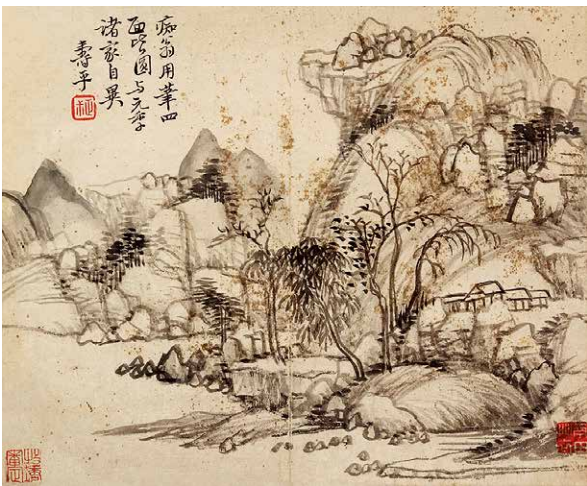 痴翁用筆四
面皆圓与元季
諸家自異
壽平